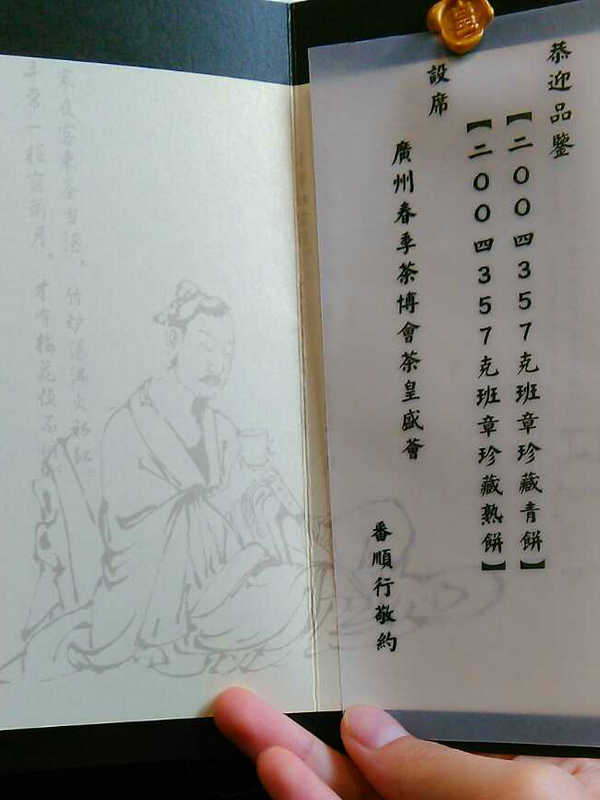 恭迎品鑒
【二00四357克班章珍藏青餅】
【二00四357克班章珍藏熟餅】
設席
廣州春季茶博會茶皇盛薈
番順行敬約
寒夜客來茶當酒，竹炉湯沸火初紅。
尋常一樣窗前月，才有梅花便不